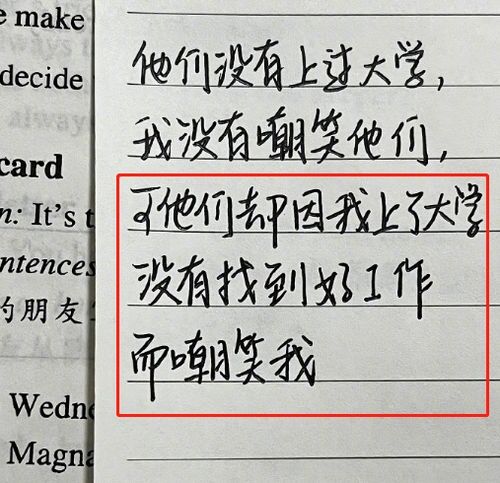 e make
decide
always
card
n: It's t
ntences
的朋友
Wedne
Magna
他们没有上过大学,
我没有嘲笑他们,
可他们却因我上了大学
没有找到好工作
而嘲笑我